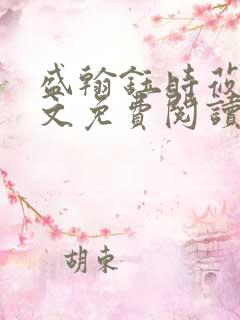 盛翰鈺時莜
文免費閱讀
胡東